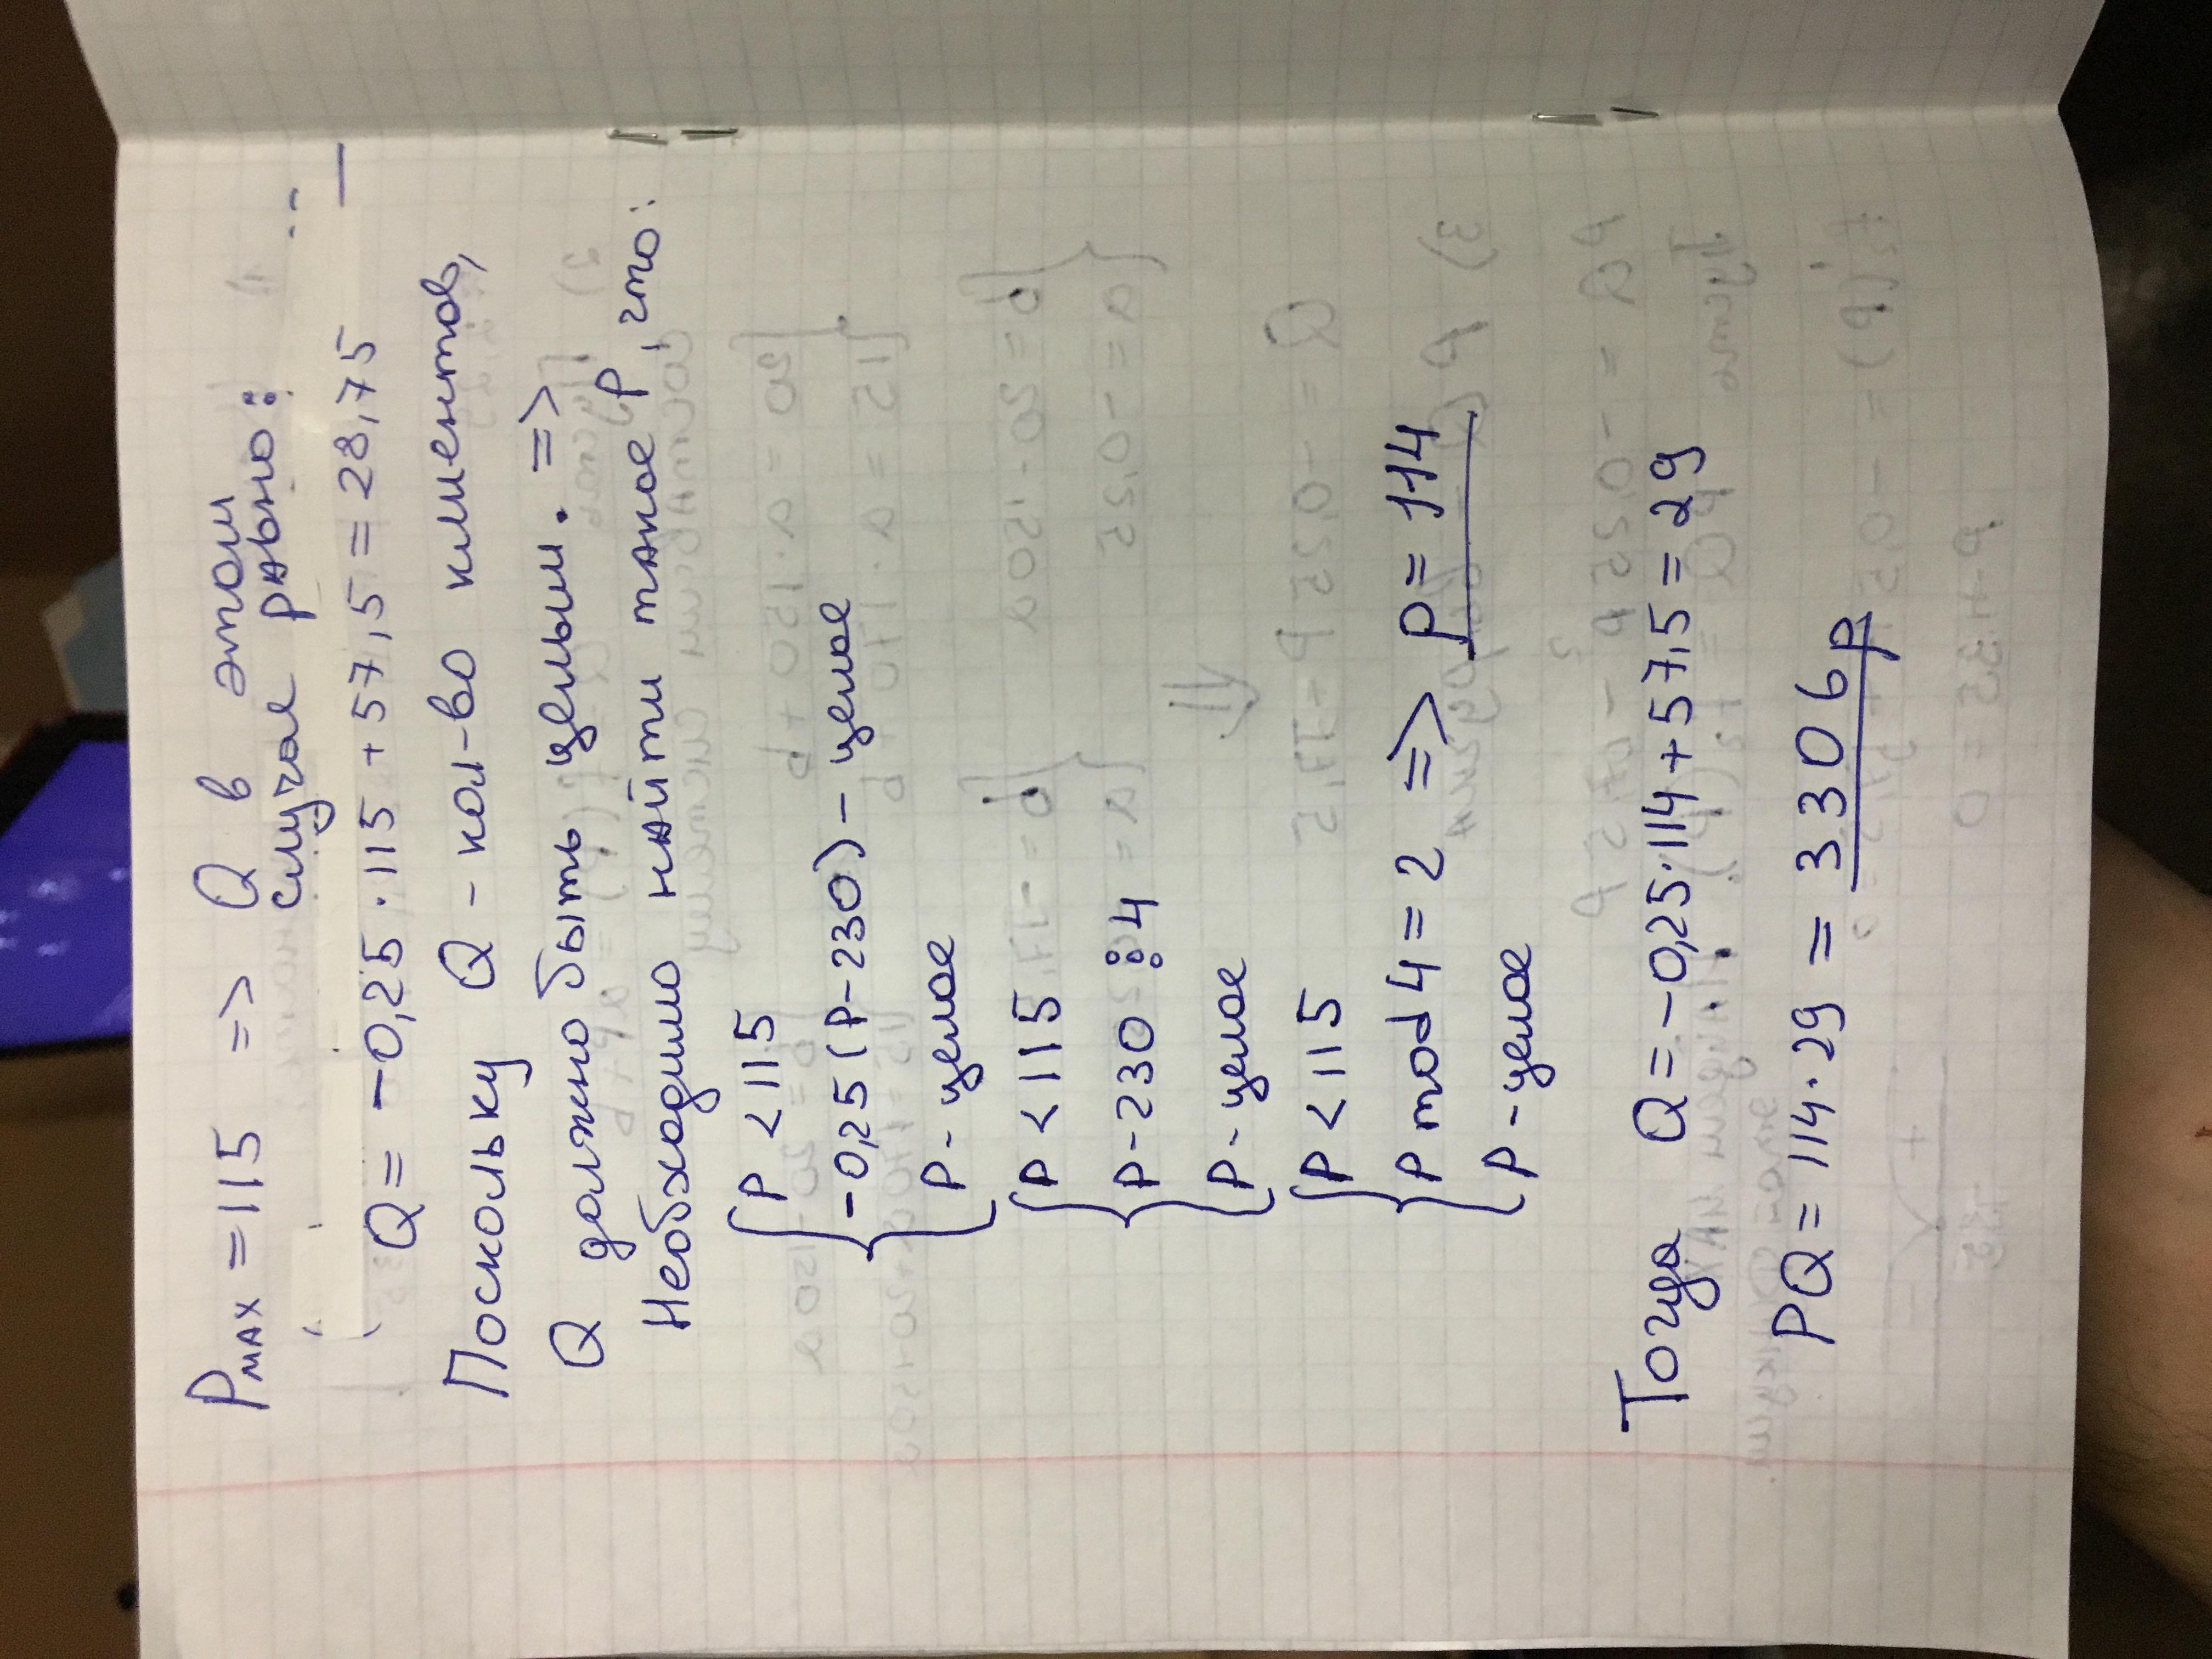 Pмах = 115 => Q в этом
случае равно:
Q = -0,25·115 + 57,5 = 28,75
Поскольку Q - кол-во клиентов,
Q должно быть целым. =>
Необходимо найти такое P, что:
P < 115
-0,25(P-230) - целое
P - целое
P < 115
P-230 ⋮ 4
P - целое
P < 115
P mod 4 = 2 => P = 114
P - целое
Тогда Q = -0,25·114 + 57,5 = 29
PQ = 114·29 = 3306р